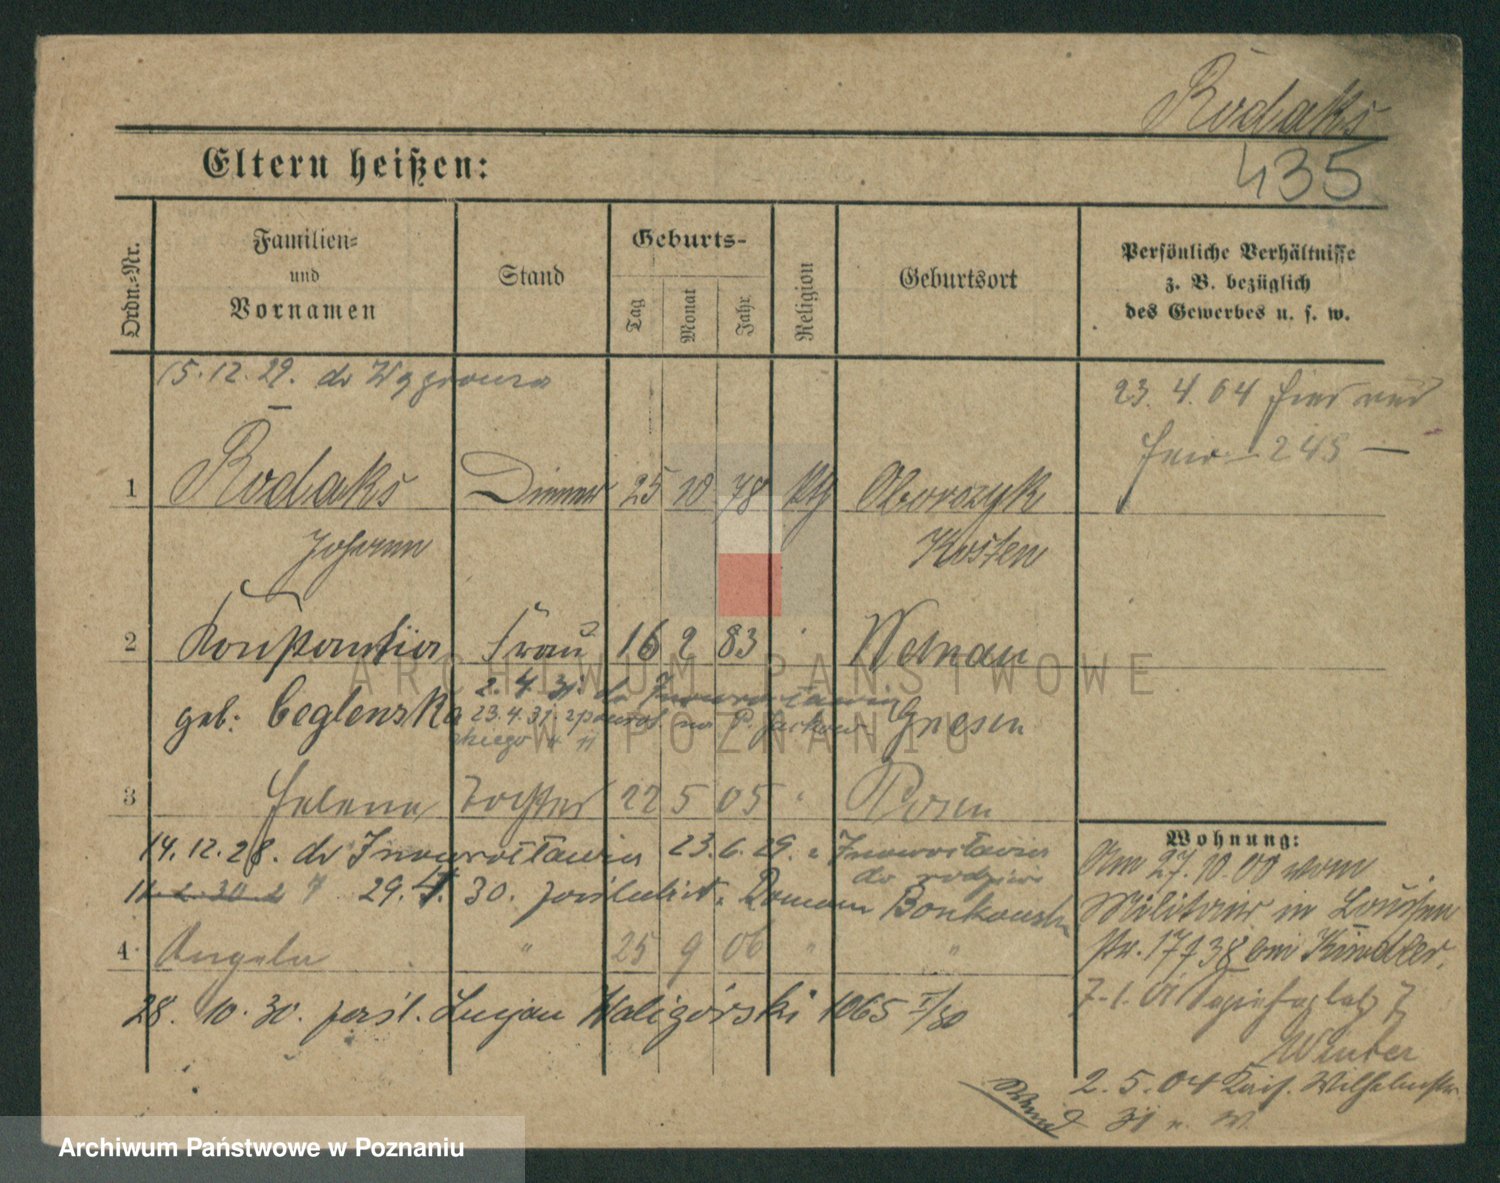 Rodaks
435
Eltern heißen:
Ordn.=Nr.
Familien=
und
Vornamen
Stand
Geburts-
Tag
Monat
Jahr
Religion
Geburtsort
Persönliche Verhältnisse
z. B. bezüglich
des Gewerbes u. s. w.
15.12.29. do
23. 4. 04
245 —
1 Rodaks Diener 25 10 78 Oborzysk
Johann Kosten
2 Konstantia Frau 16 2 83 Welnau
2. 4. 31. do Inowrocławia
geb: Ceglenska 23.4.31. Gnesen
3 Helena Tochter 22 5 05 " Posen
Wohnung:
14. 12. 28. do Inowrocławia 23. 6. 29. z Inowrocławia
do rodziców
11.2.30 29. 4. 30. poślubiła Roman Bonkowski
4. Angela " 25 9 06 " "
28. 10. 30. pośl. Lucjan Waligórski 1065 I/80
Am 27.10.00 vom
Militair in Louisen
str. 17 bei Kindler.
7.1.01 7
Winter
2. 5. 04 Kais. Wilhelmstr.
31
ARCHIWUM PAŃSTWOWE
W POZNANIU
Archiwum Państwowe w Poznaniu